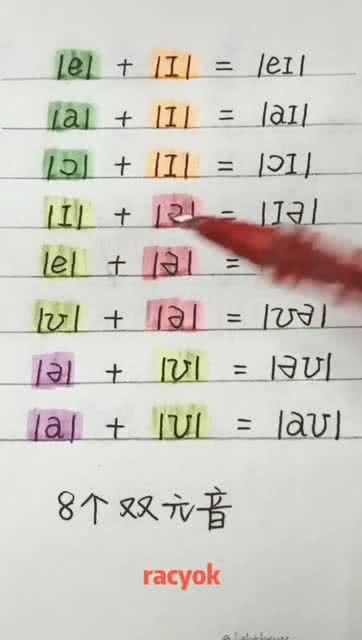 |e| + |ɪ| = |eɪ|
|a| + |ɪ| = |aɪ|
|ɔ| + |ɪ| = |ɔɪ|
|ɪ| + |ə| = |ɪə|
|e| + |ə| =
|ʊ| + |ə| = |ʊə|
|ə| + |ʊ| = |əʊ|
|a| + |ʊ| = |aʊ|
8个双元音
racyok